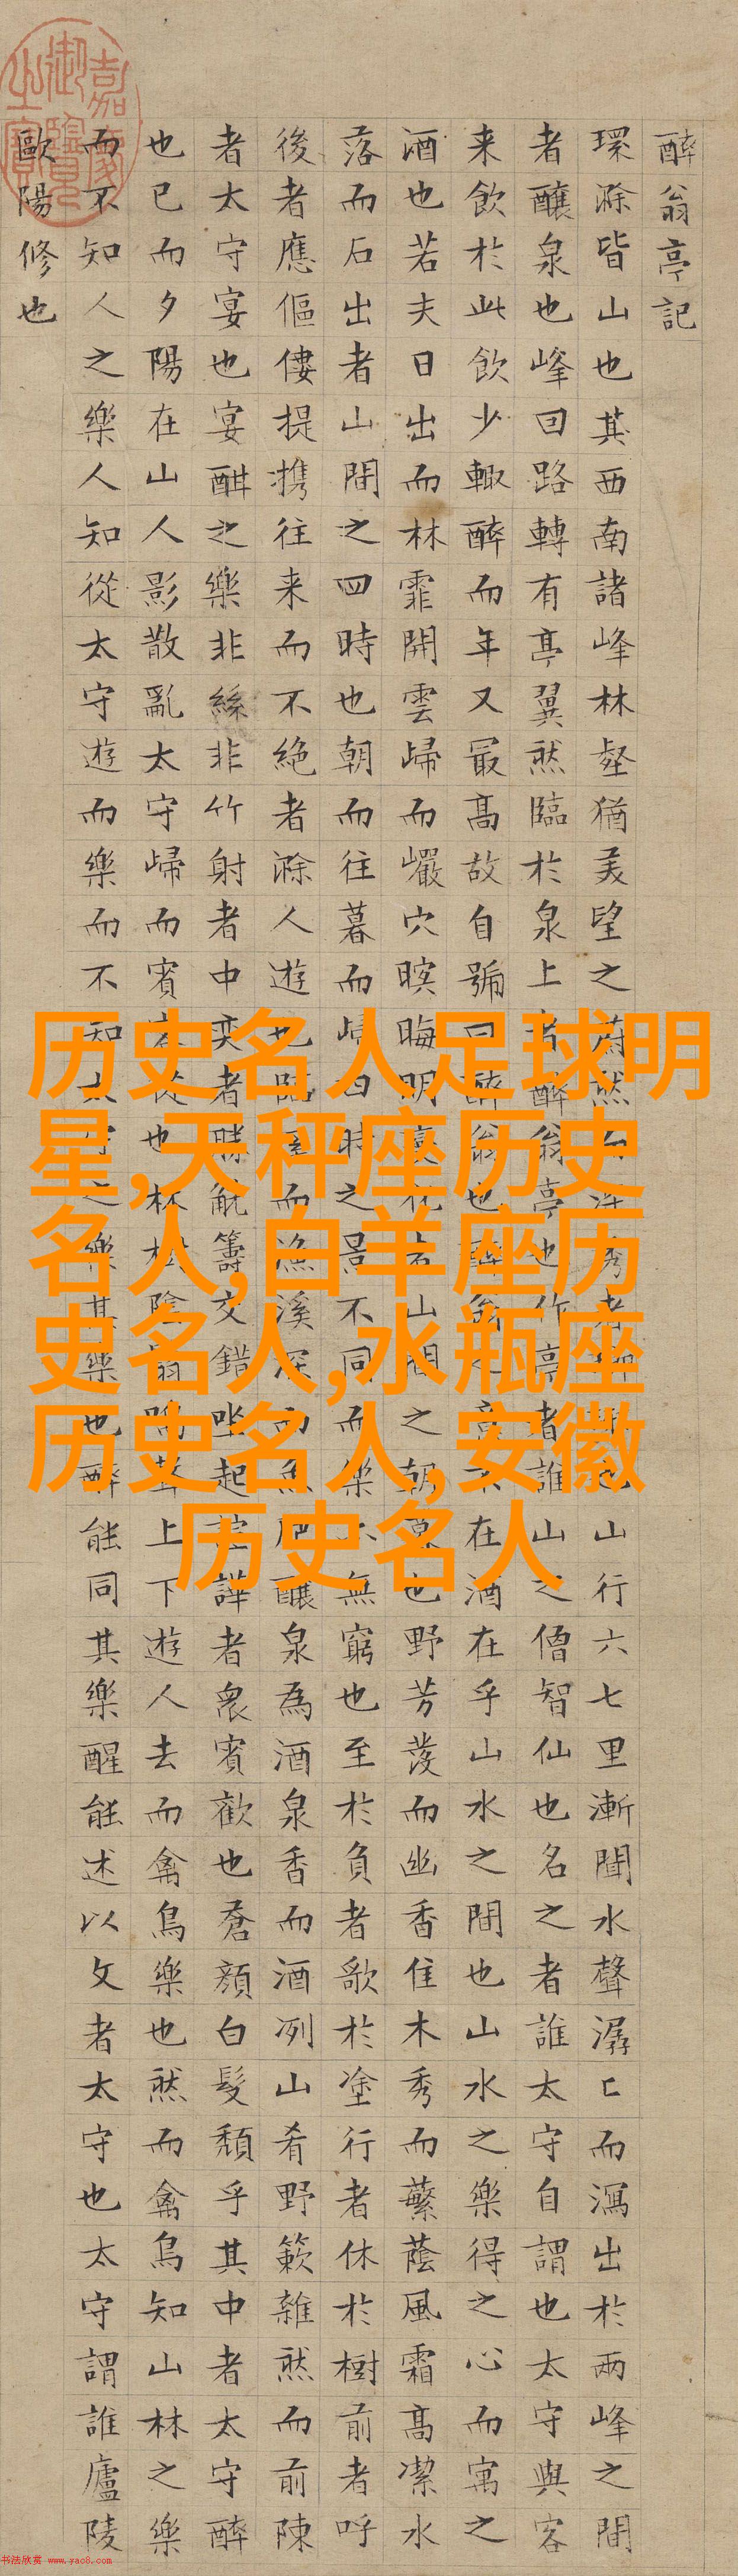 醉翁亭記
環滁皆山也其西南諸峰林壑猶美望之蔚然秀者山行六七里漸聞水聲潺〻而瀉出於兩峰之間
者釀泉也峰回路轉有亭翼然臨於泉上者醉翁亭也作亭者誰山之僧智仙也名之者誰太守自謂也太守與客
来飲於此飲少輒醉而年又最高故自號曰醉翁也醉在酒在乎山水之間也山水之樂得之心而寓之
酒也若夫日出而林霏開雲歸而巖穴暝晦明變化山間之朝暮也野芳發而幽香佳木秀而蘩蔭風霜高潔水
落而石出者山間之四時也朝而往暮而歸四時之景不同而樂亦無窮也至於負者歌於塗行者休於樹前者呼
後者應傴僂提攜往来而不絕者滁人遊也臨而漁溪深而魚肥釀泉為酒泉香而酒冽山肴野簌雜然而前陳
者太守宴也宴酣之樂非絲非竹射者中奕者勝觥籌交錯坐起諠譁者衆賓歡也蒼顏白髮頹乎其中者太守醉
也已而夕陽在山人影散亂太守歸而賓客從也林樹陰翳鳴聲上下遊人去而禽鳥樂也然而禽鳥知山林之樂
而不知人之樂人知從太守遊而樂而不知太守之樂其樂也醉能同其樂醒能述以文者太守也太守謂誰廬陵
歐陽修也
历史名人足球明
星,天秤座历史
名人,白羊座历
史名人,水瓶座
历史名人,安徽
历史名人
书法欣赏 www.yac8.com